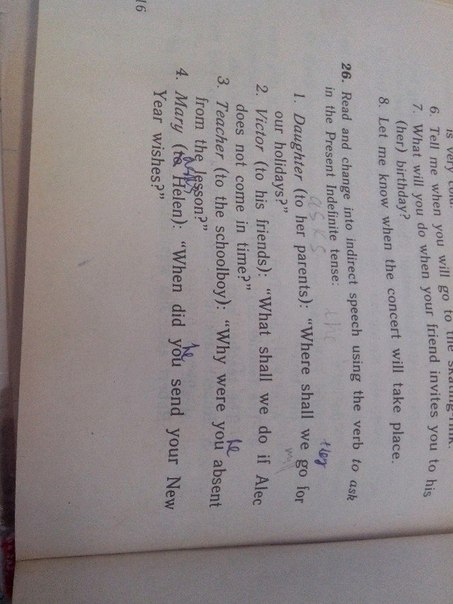 is very cold.
6. Tell me when you will go to the skating-rink.
7. What will you do when your friend invites you to his
(her) birthday?
8. Let me know when the concert will take place.
26. Read and change into indirect speech using the verb to ask
in the Present Indefinite tense:
asks
they
1. Daughter (to her parents): “Where shall we go for
our holidays?”
2. Victor (to his friends): “What shall we do if Alec
does not come in time?”
he
3. Teacher (to the schoolboy): “Why were you absent
from the lesson?”
asks
he
4. Mary (to Helen): “When did you send your New
Year wishes?”
16